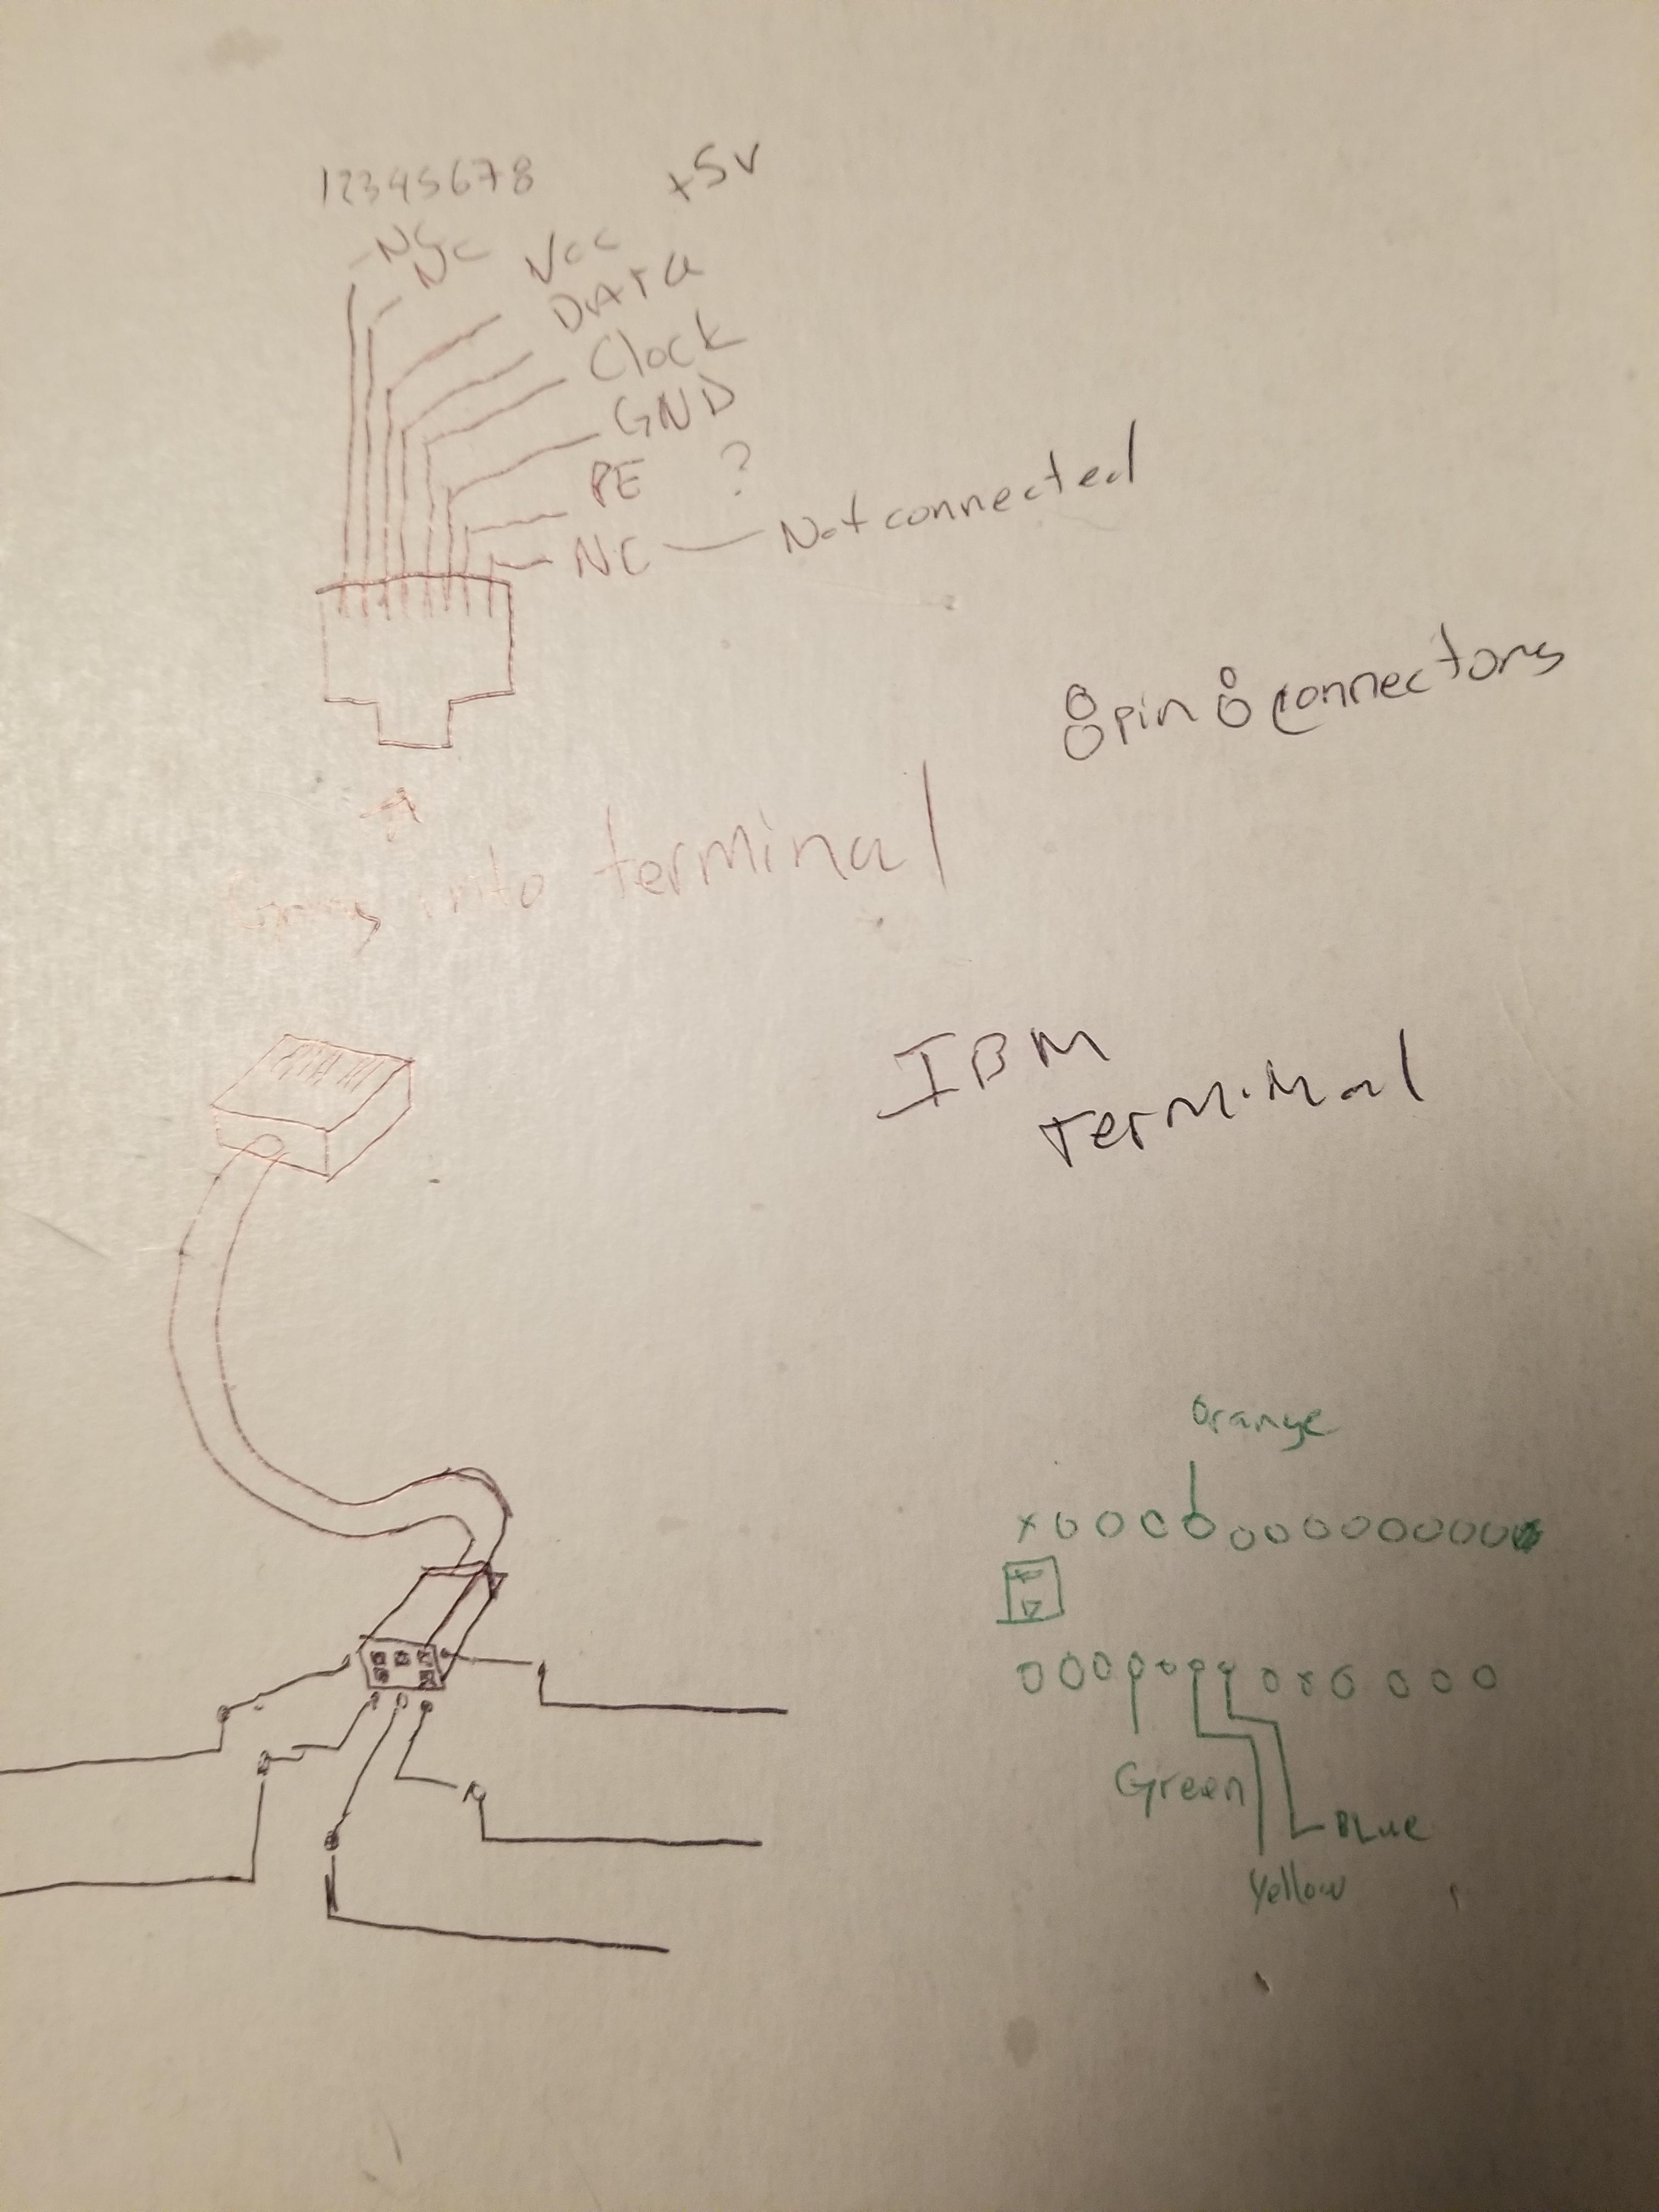 12345678
+5V
NC
NC
Vcc
DATA
Clock
GND
PE ?
NC — Not connected
8pin 8 connectors
Going into terminal
IBM
Terminal
Orange
Green
BLue
Yellow